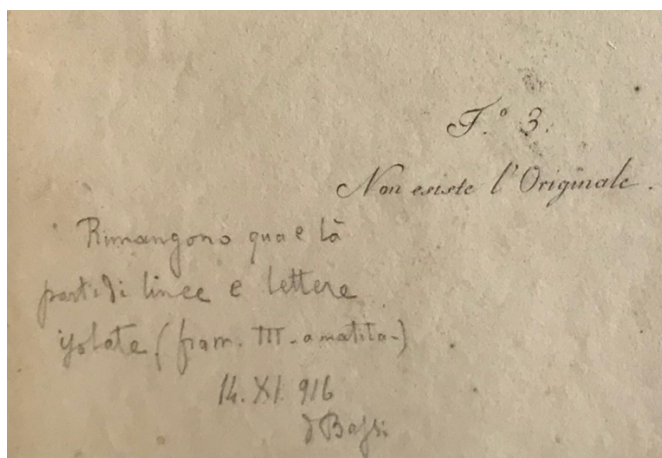 F.º 3.
Non esiste l'Originale.
Rimangono qua e là
parti di linee e lettere
isolate (fram. III. a matita-)
14. XI. 916
D Bassi